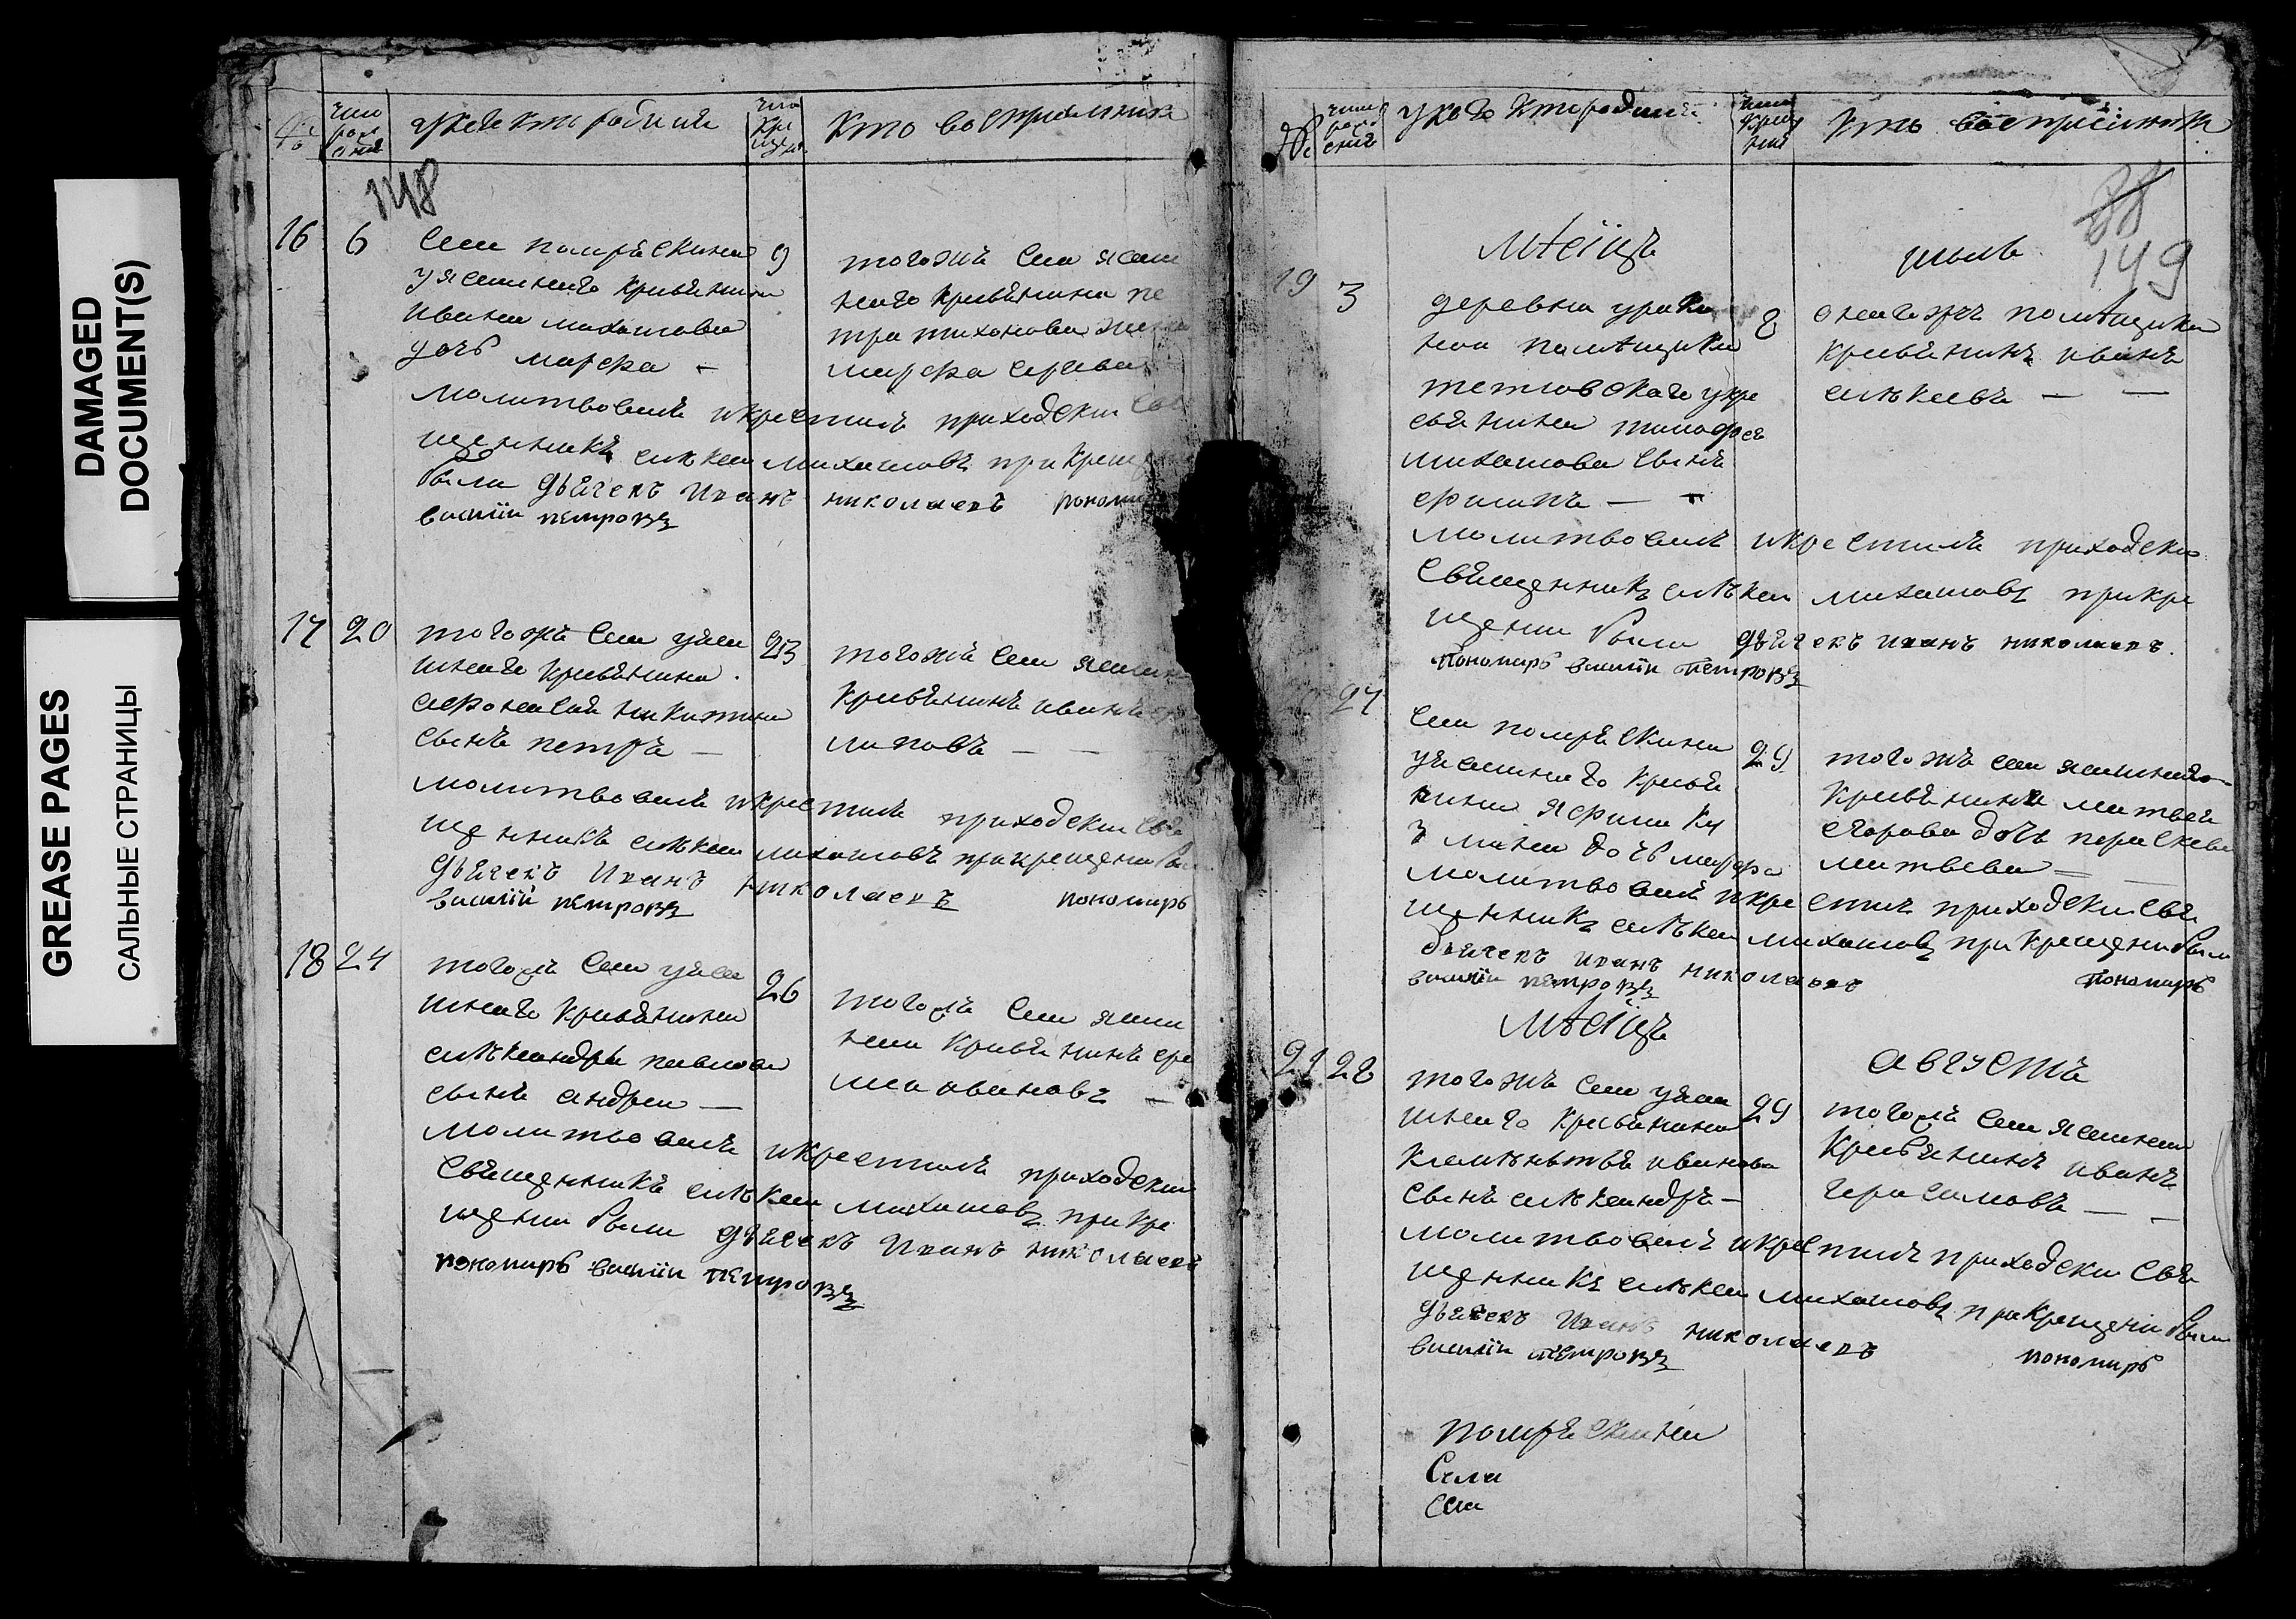 DAMAGED
DOCUMENT(S)
GREASE PAGES
САЛЬНЫЕ СТРАНИЦЫ
№ число рож дения
у кого кто родился
число кре щения
кто восприемники
148
16 6
села
у ясашнаго крестьянина
ивана михаилова
дочь марфа —
9
того жъ села ясаш
наго крестьянина пе
тра тихонова жена
марфа
молитвовалъ и крестилъ приходски свя
щенникъ алѣксеи михаиловъ при креще
были дьячекъ Иванъ николаевъ пономарь
василiи петровъ
17 20
того жъ села у яса
шнаго крестьянина
афонасия никитина
сынъ петръ —
23
того жъ села ясашн
крестьянинъ иванъ
липовъ — —
молитвовалъ и крестилъ приходски свя
щенникъ алѣксеи михаиловъ при крещени были
дьячекъ Иванъ николаевъ пономарь
василiй петровъ
18 24
того жъ села у яса
шнаго крестьянина
алѣксандра павлова
сынъ андреи —
26
того жъ села ясаш
наи крестьянинъ
ивановъ —
молитвовалъ и крестилъ приходски
священникъ алѣксеи михаиловъ при кре
щении были дьячекъ Иванъ николаевъ
пономарь василiи петровъ
№ число рожд ения
у кого кто родился
число крещ ения
кто воспрiемники
88
149
мѣсiцъ
июль
19 3
деревни
помѣщика
у кре
стьянина тимофея
михаилова сынъ
филипъ —
8
онагожъ помѣщика
крестьянинъ иванъ
алѣксеевъ — —
молитвовалъ и крестилъ приходски
священникъ алѣксеи михаиловъ при кре
щении были дьячекъ иванъ николаевъ
пономарь василiи петровъ
27
села
у ясашнаго крестья
нина
дочь марфа
29
того жъ села ясашнаго
крестьянина матвея
егорова дочь параскева
матвеева —
молитвовалъ и крестилъ приходски свя
щенникъ алѣксеи михаиловъ при крещени были
дьячекъ иванъ николаевъ пономарь
василiи петровъ
мѣсiцъ
августъ
21 28
того жъ села у яса
шнаго крестьянина
ивинова
сынъ алѣксандръ —
29
того жъ села ясашнаи
крестьянинъ иванъ
герасимовъ — —
молитвовалъ и крестилъ приходски свя
щенникъ алѣксеи михаиловъ при крещени были
дьячекъ Иванъ николаевъ пономарь
василiи петровъ
села
села